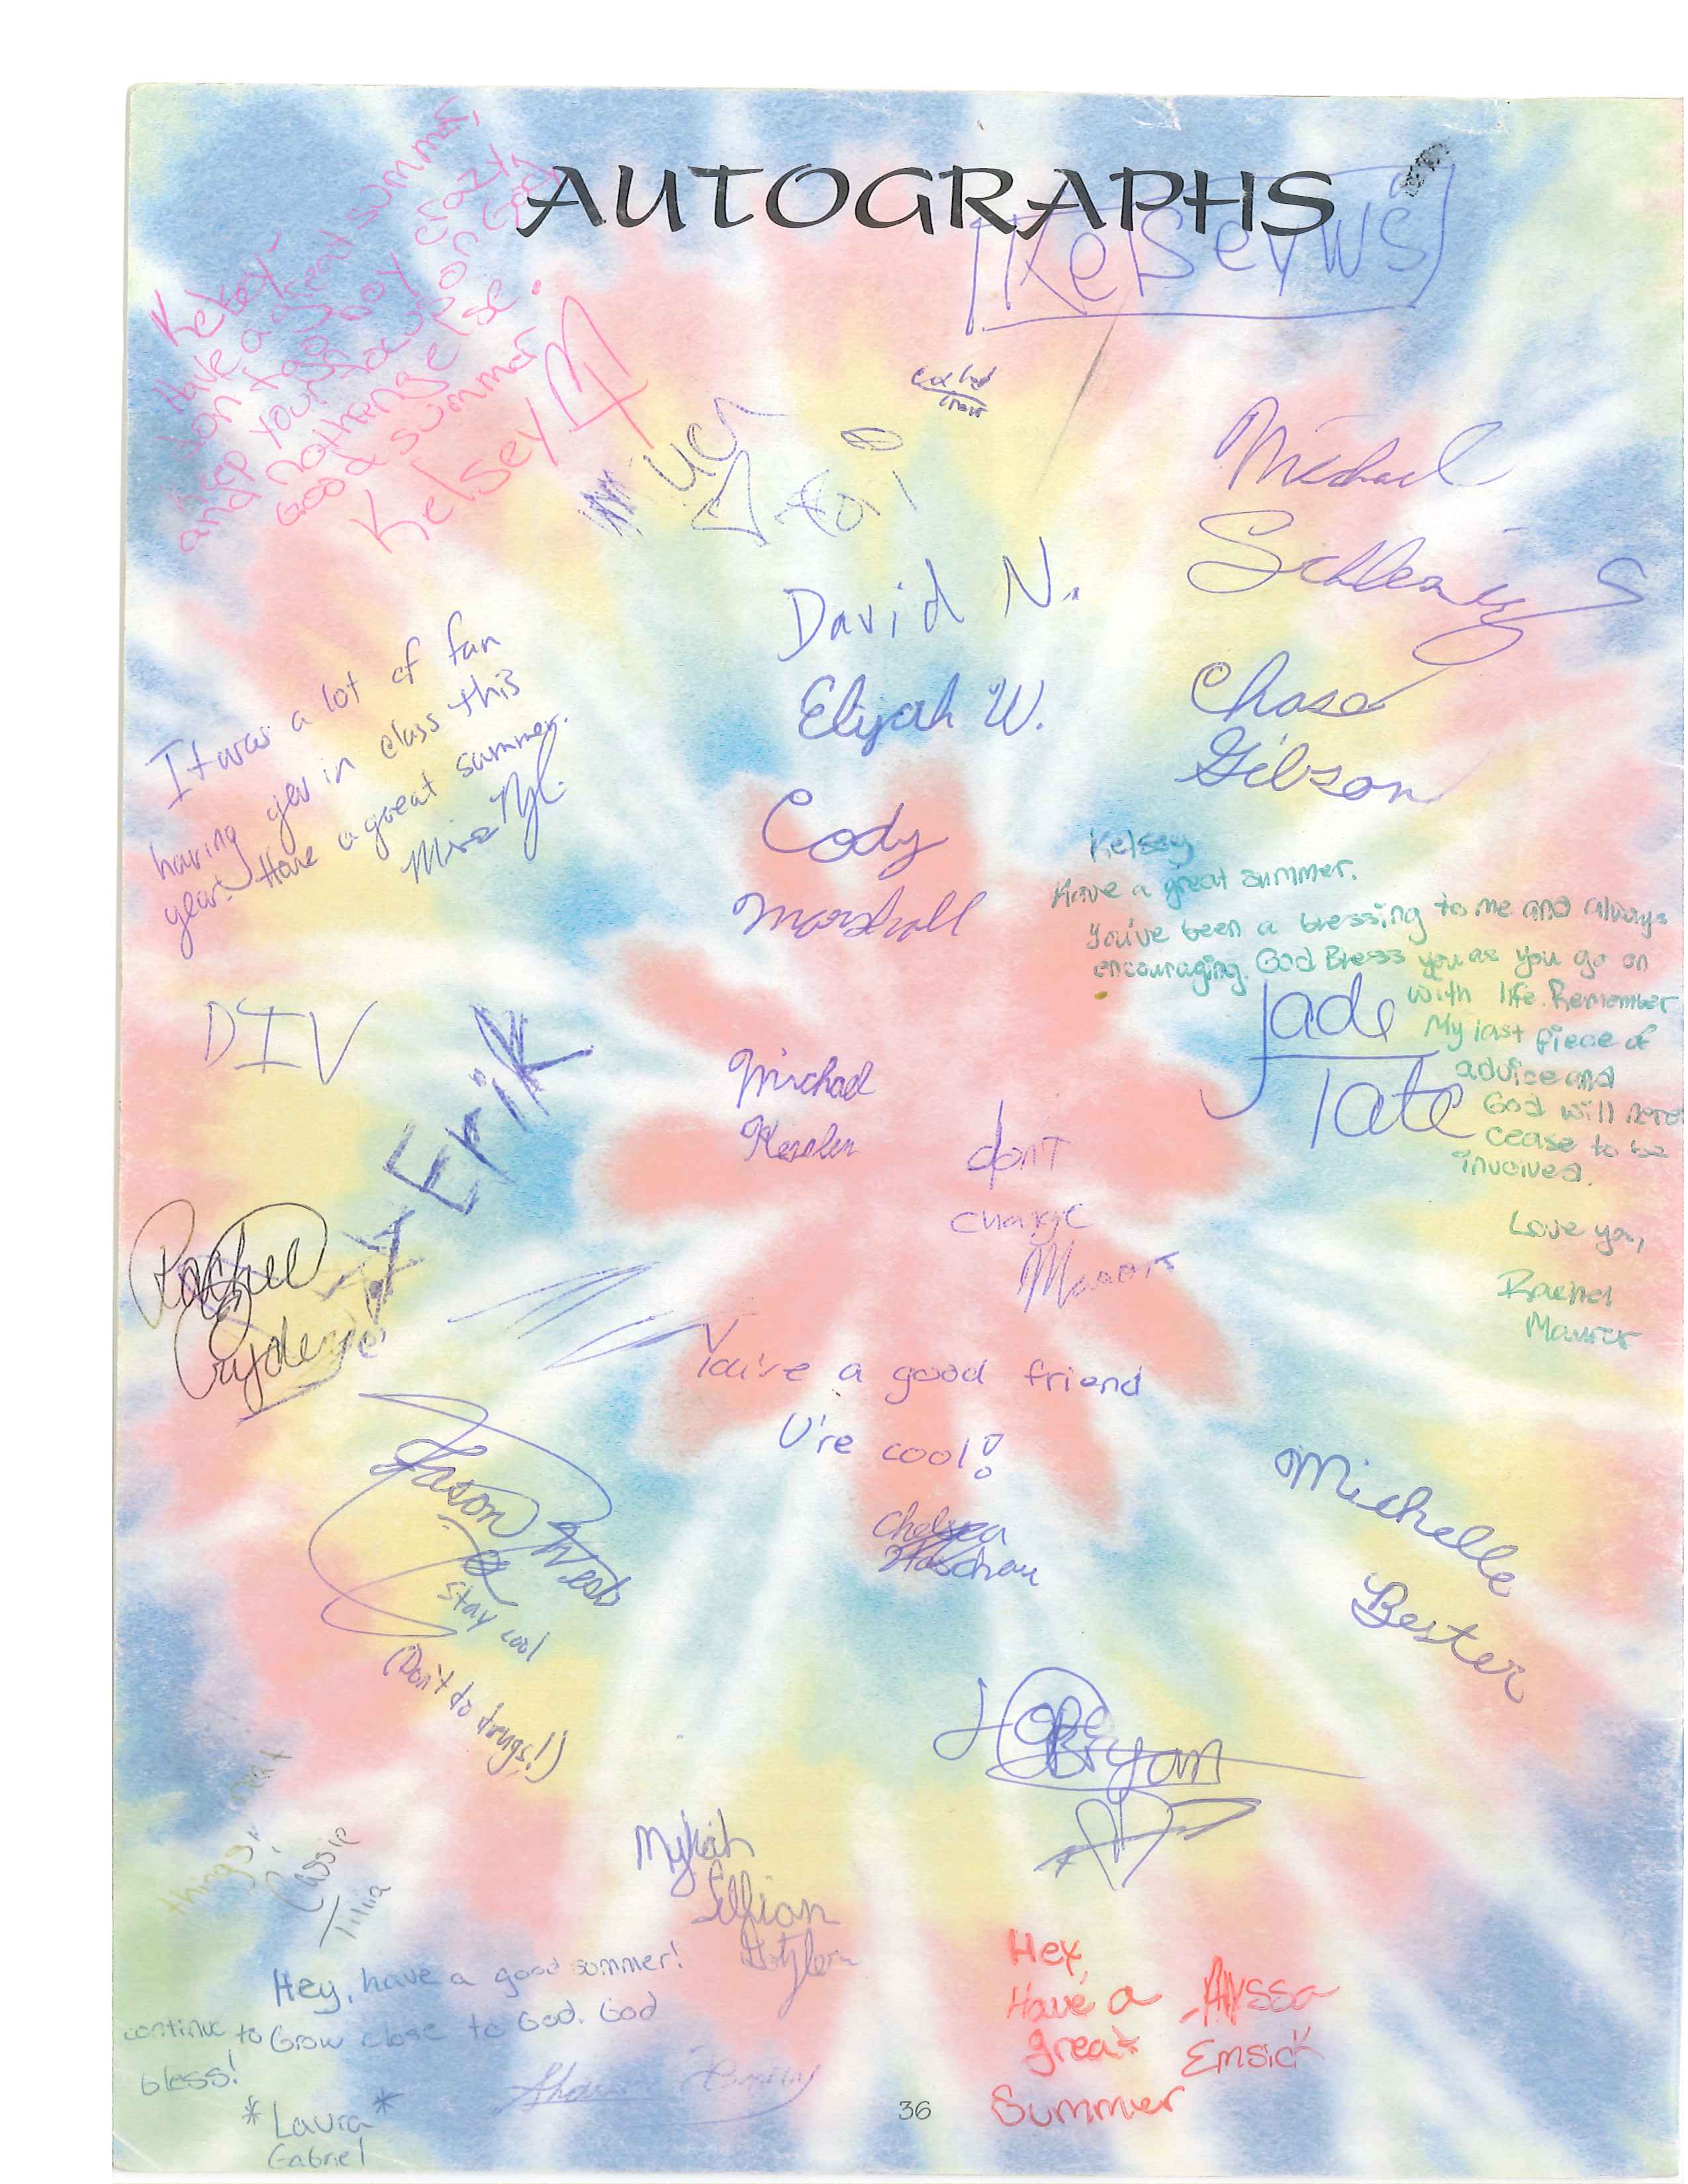 AUTOGRAPHS
KelseyWS
Kelsey-
Have a great summer,
don't go boy crazy,
keep your focus on God,
and nothing else.
Good summer.
Kelsey M
David N.
Elijah W.
Michael
Chase
Gibson
Cody
Marshall
It was a lot of fun
having you in class this
year! Have a great summer.
Miss
Kelsey
Have a great summer.
You've been a blessing to me and always
encouraging. God Bless you as you go on
with life. Remember
My last piece of
advice and
God will never
cease to be
involved.
Love you,
Rachel
Maurer
Jade
Tate
DIV
Erik
Michael
don't
change
Rachel
You're a good friend
U're cool!
Chelsea
Jason West
Stay cool
(Don't do drugs!)
Michelle
Bester
Hope
Bryan
things
Cassie
Tillia
Mykah
Lillian
Hey, have a good summer!
continue to Grow close to God. God
bless!
*Laura*
Gabriel
Hey,
Have a
great
Summer
Alyssa
Emsick
36